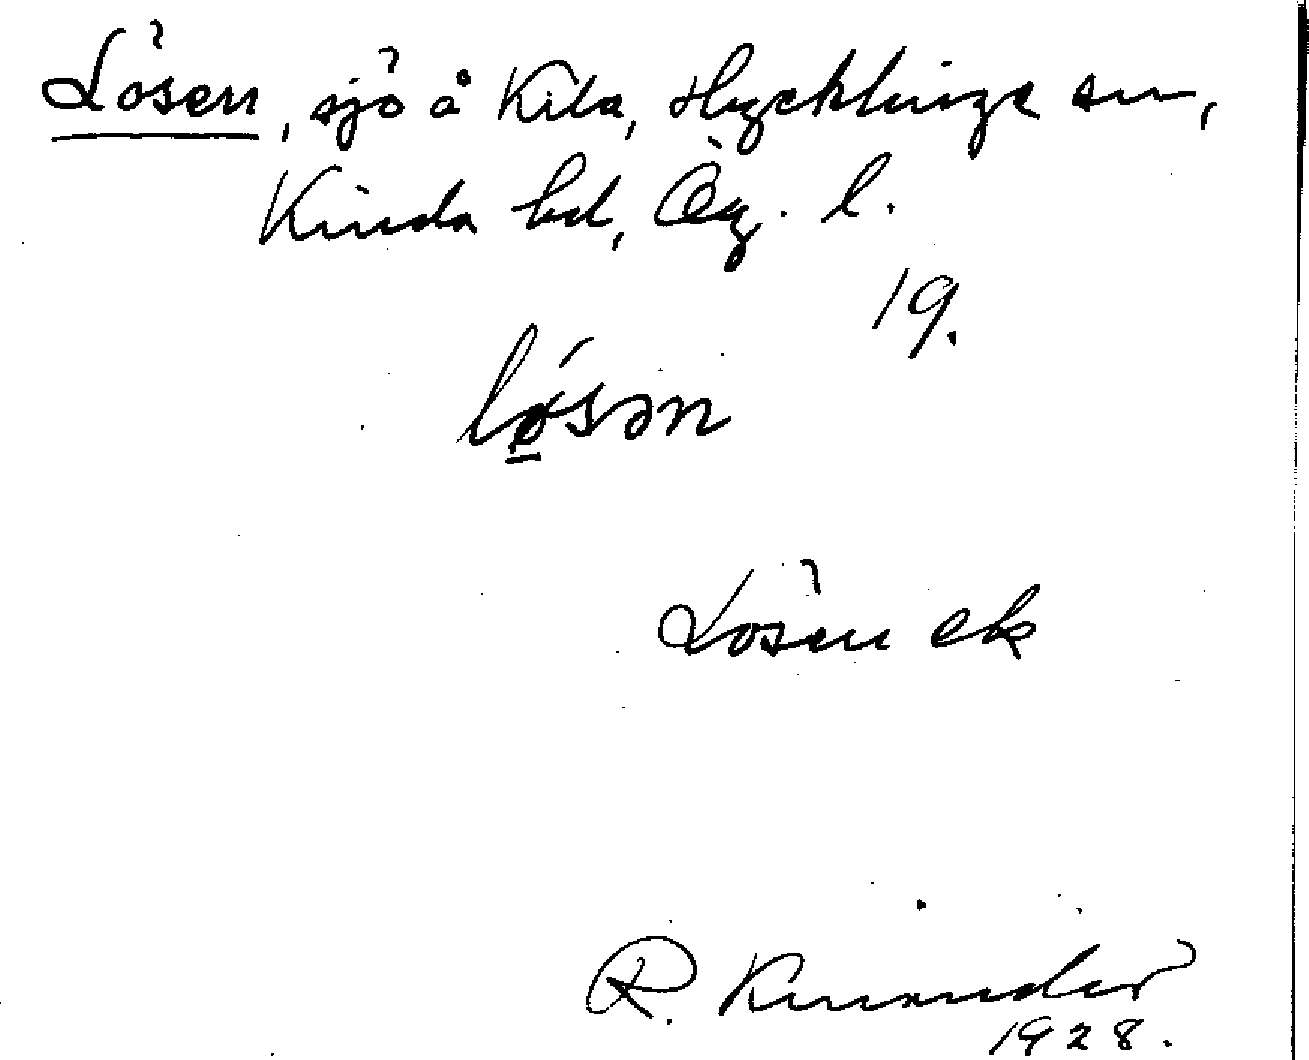 Lösen, sjö å Kila, Hycklinge sn,
Kinda hd, Ög. l.
19.
lǿsən
Lösen ek
R. Kinander
1928.